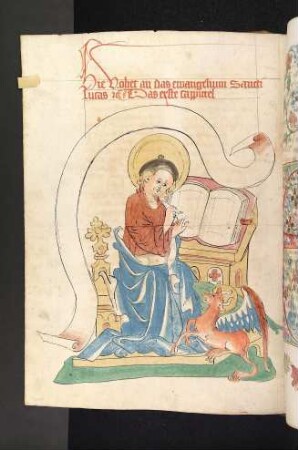 Hie vohet an das ewangelium Sancti
lucas Das erste cappittel